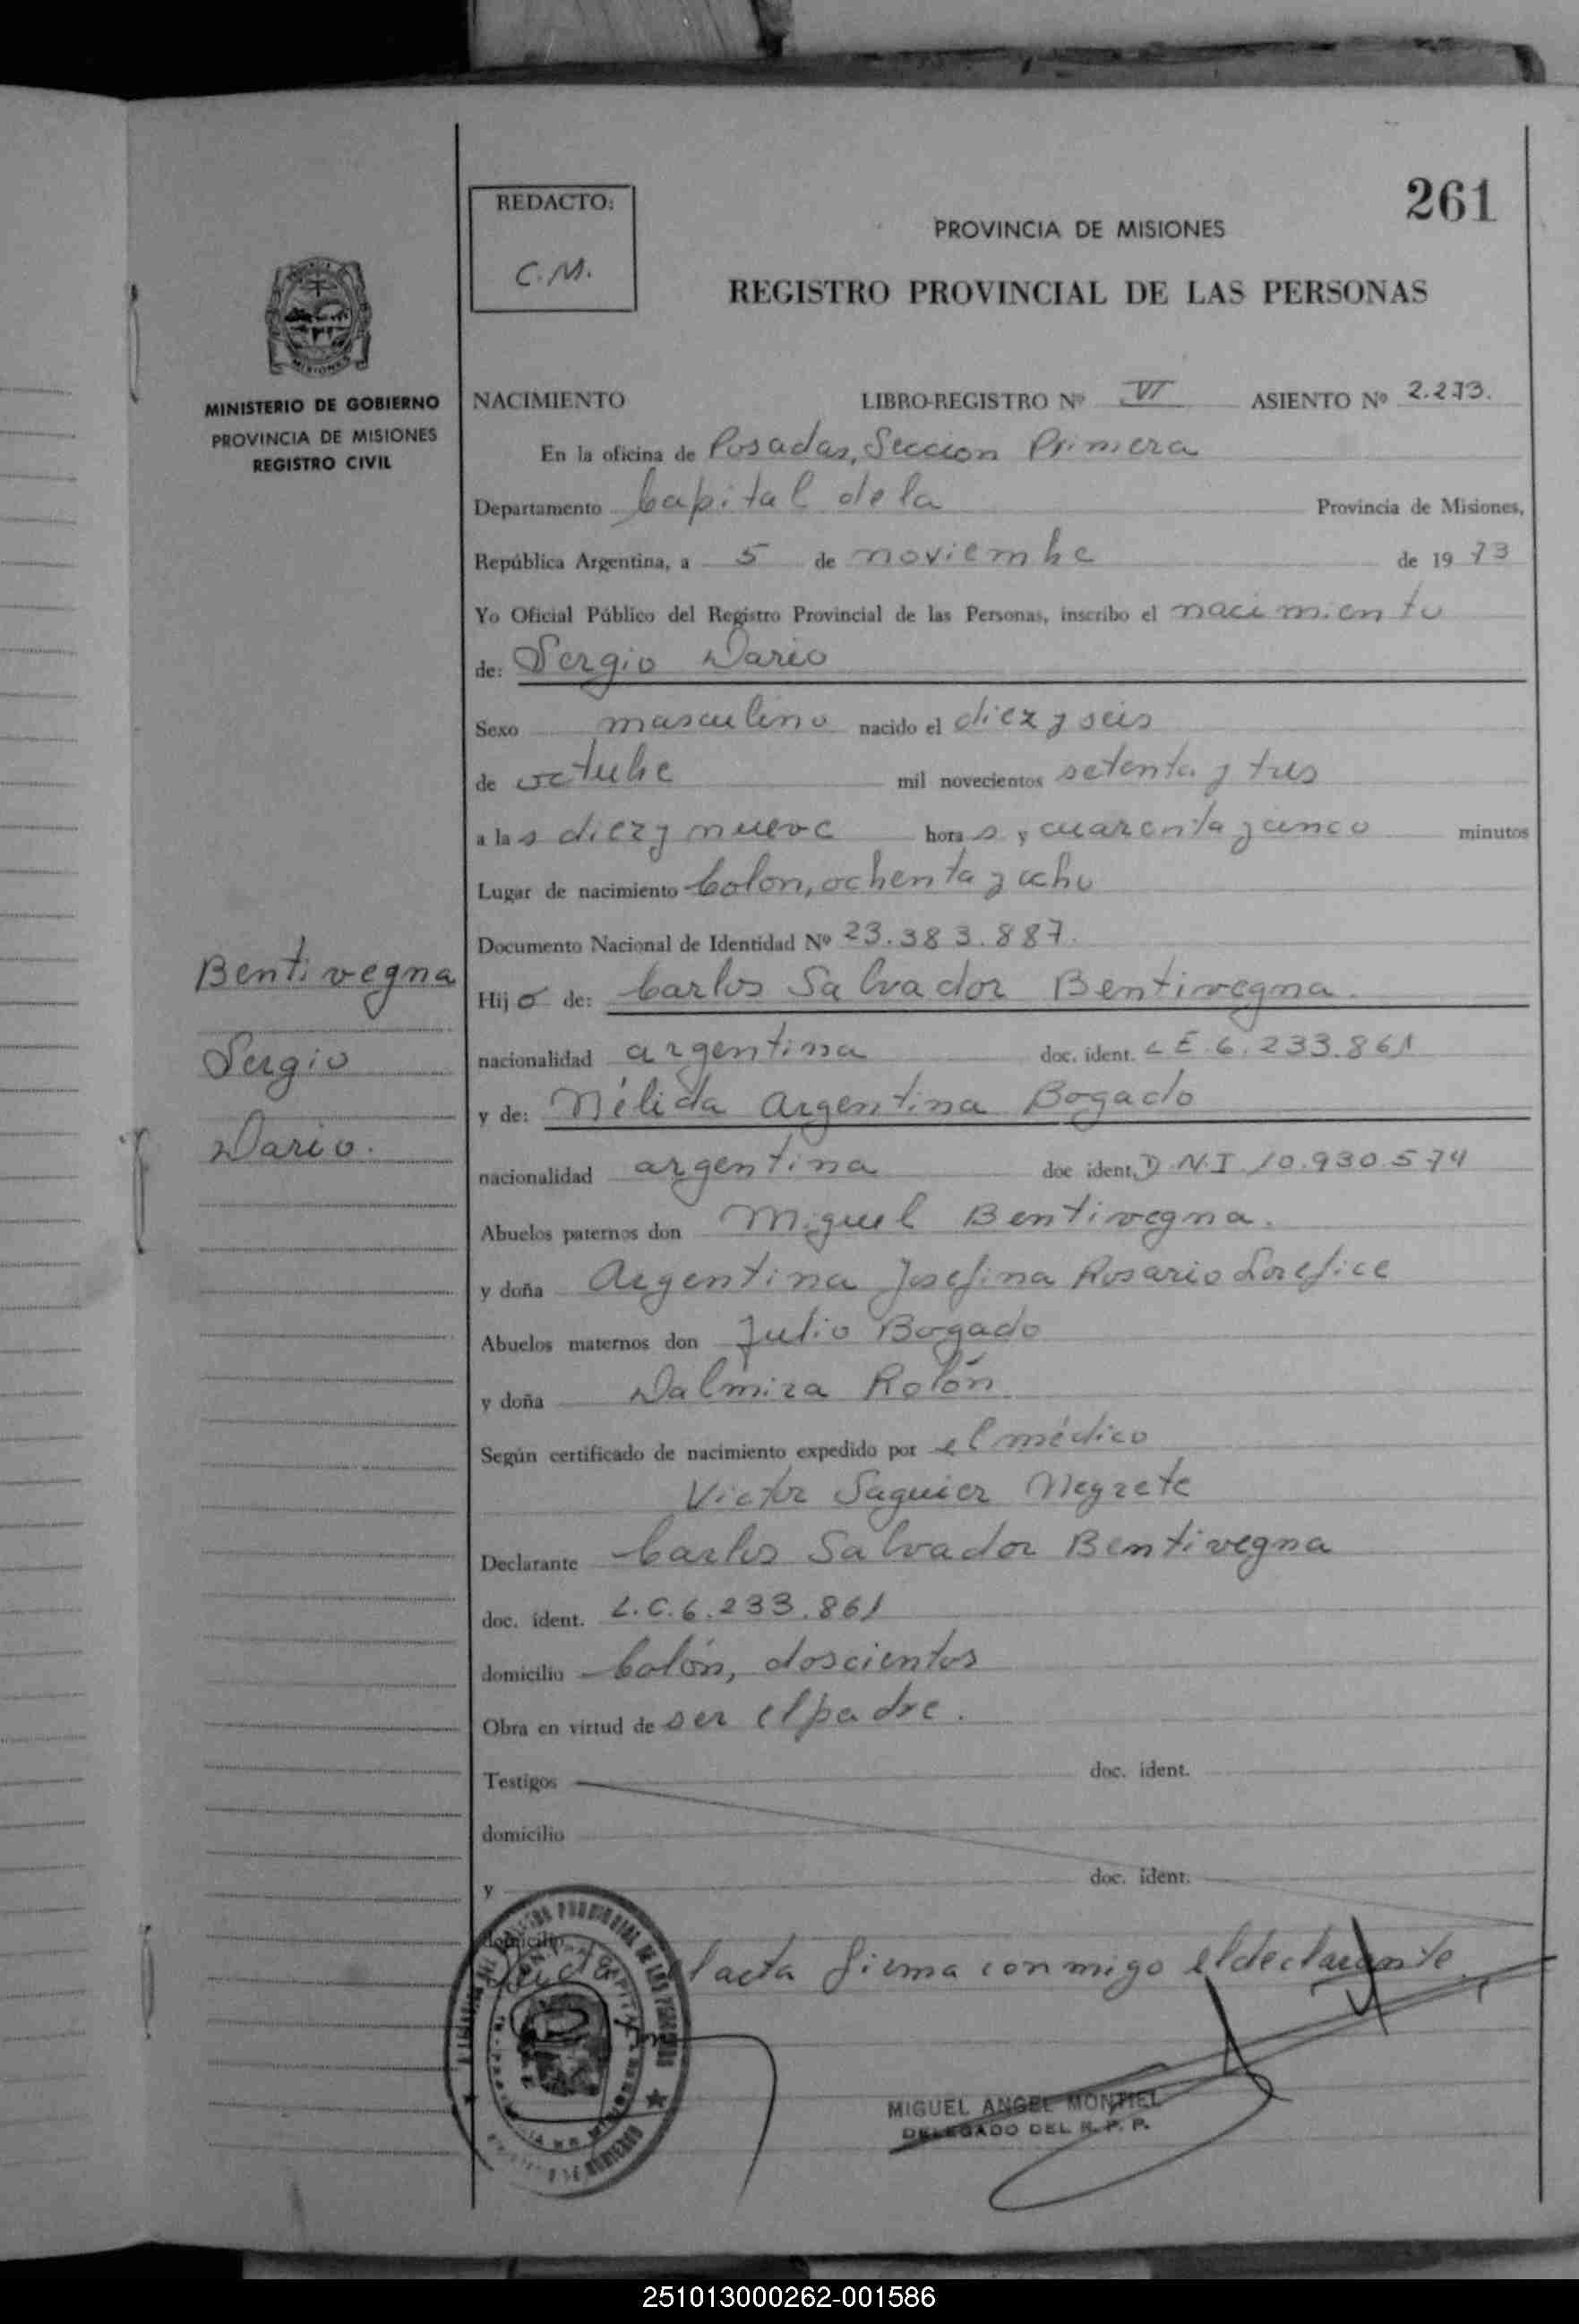 261
REDACTO:
C.M.
PROVINCIA DE MISIONES
REGISTRO PROVINCIAL DE LAS PERSONAS
MISIONES
MINISTERIO DE GOBIERNO
PROVINCIA DE MISIONES
REGISTRO CIVIL
NACIMIENTO LIBRO-REGISTRO Nº VI ASIENTO Nº 2.273.
En la oficina de Posadas, Seccion Primera
Departamento Capital de la Provincia de Misiones,
República Argentina, a 5 de noviembre de 19 73
Yo Oficial Público del Registro Provincial de las Personas, inscribo el nacimiento
de: Sergio Dario
Sexo masculino nacido el diez y seis
de octubre mil novecientos setenta y tres
a la s diez y nueve hora s y cuarenta y cinco minutos
Lugar de nacimiento Colon, ochenta y ocho
Documento Nacional de Identidad Nº 23.383.887.
Bentivegna
Sergio
Dario.
Hij o de: Carlos Salvador Bentivegna.
nacionalidad argentina doc. ident. L E. 6. 233.861
y de: Nélida Argentina Bogado
nacionalidad argentina doc ident. D.N.I 10.930.574
Abuelos paternos don Miguel Bentivegna.
y doña Argentina Josefina Rosario Lorefice
Abuelos maternos don Julio Bogado
y doña Dalmira Rolón
Según certificado de nacimiento expedido por el médico
Victor Saguier Negrete
Declarante Carlos Salvador Bentivegna
doc. ident. L.C. 6. 233.861
domicilio Colón, doscientos
Obra en virtud de ser el padre.
Testigos doc. ident.
domicilio
y doc. ident.
domicilio
acta firma conmigo el declarante.
MIGUEL ANGEL MONTIEL
DELEGADO DEL R. P. P.
251013000262-001586